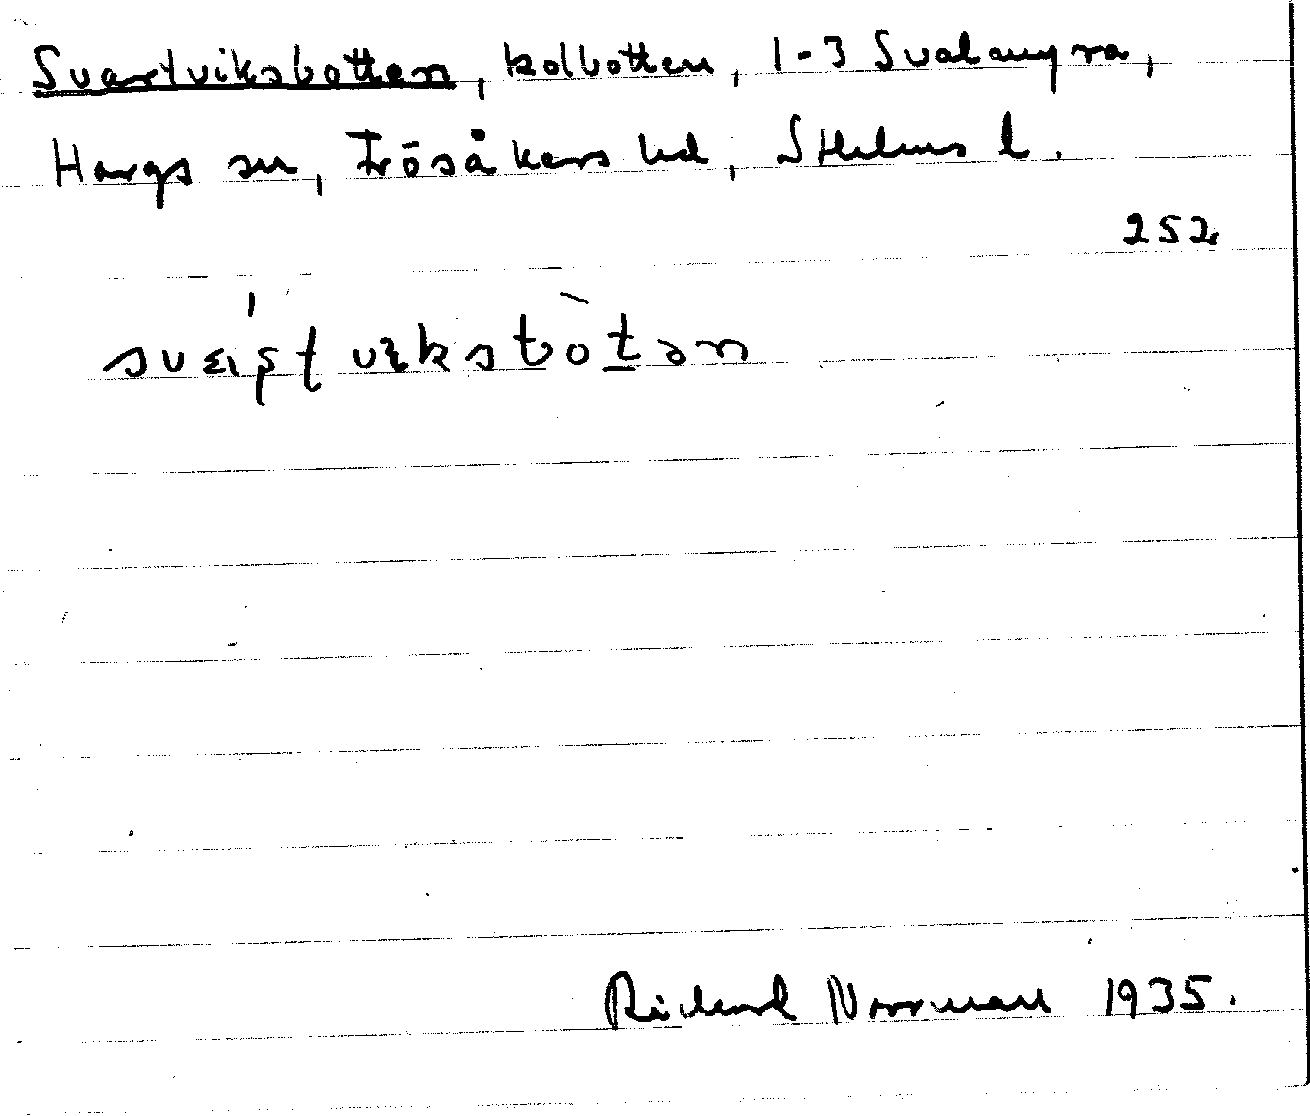 Svartviksbotten, kolbotten, 1-3 Svalamyra,
Hargs sn, Frösåkers hd, Sthlms l.
252
Richard Norrman 1935.